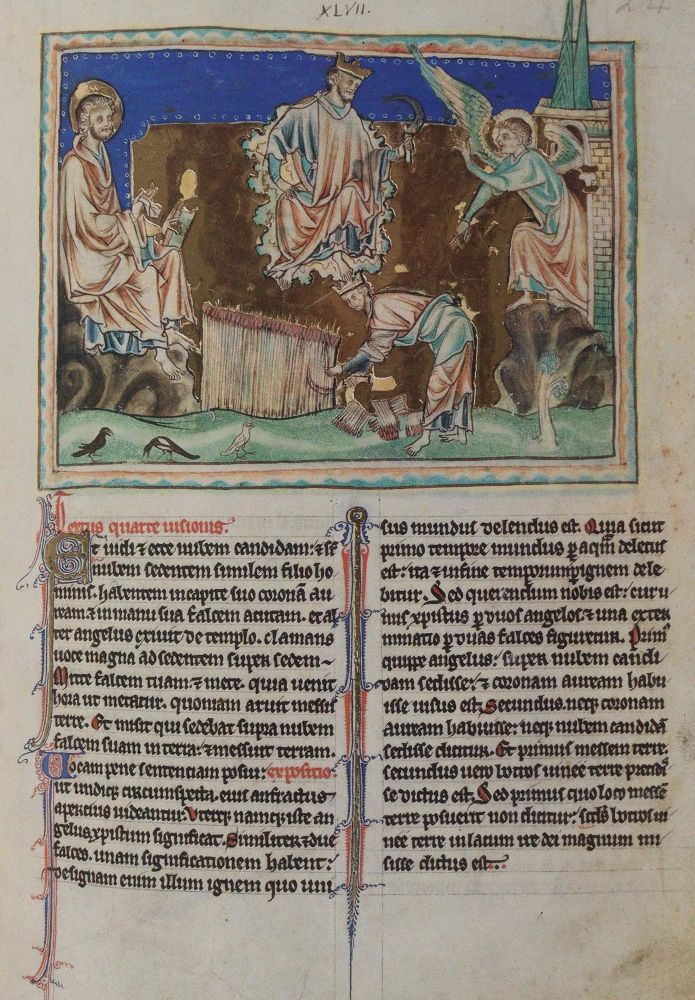 XLVII.
24
Textus quarte visionis.
Et vidi et ecce nubem candidam: & sr
nubem sedentem similem filio ho
minis. habentem in capite suo coronā au
ream & in manu sua falcem acutam. et al
ter angelus exivit de templo. clamans
voce magna ad sedentem super sedem‒
Mitte falcem tuam & mete. quia venit
hora ut metatur. quoniam aruit messis
terre. Et misit qui sedebat supra nubem
falcem suam in terrā: & messuit terram.
Locam pene sentenciam posui: expositio
ut undiq; circumspecta. eius anfractus
apercius videantur. Uterq; namq; iste an
gelus xpistum significat. Similiter & due
falces. unam significationem habent:
Designant enim illum ignem quo uni
sus mundus delendus est. Quia sicut
primo tempore mundus p aquā deletus
est: ita & in fine temporum p ignem dele
bitur. Sed querendum nobis est: cur u
nus xpistus p duos angelos: & una exter
minatio p duas falces figuretur. Prim'
quippe angelus: super nubem candi
dam sedisse: & coronam auream habu
isse visus est. Secundus. neq; coronam
auream habuisse: neq; nubem candidā
sedisse dicitur. Et primus messem terre.
secundus vero botros vinee terre prendis
se dictus est. Sed primus quo loco messē
terre posuerit non dicitur: scds botros vi
nee terre in lacum ire dei magnum mi
sisse dictus est.